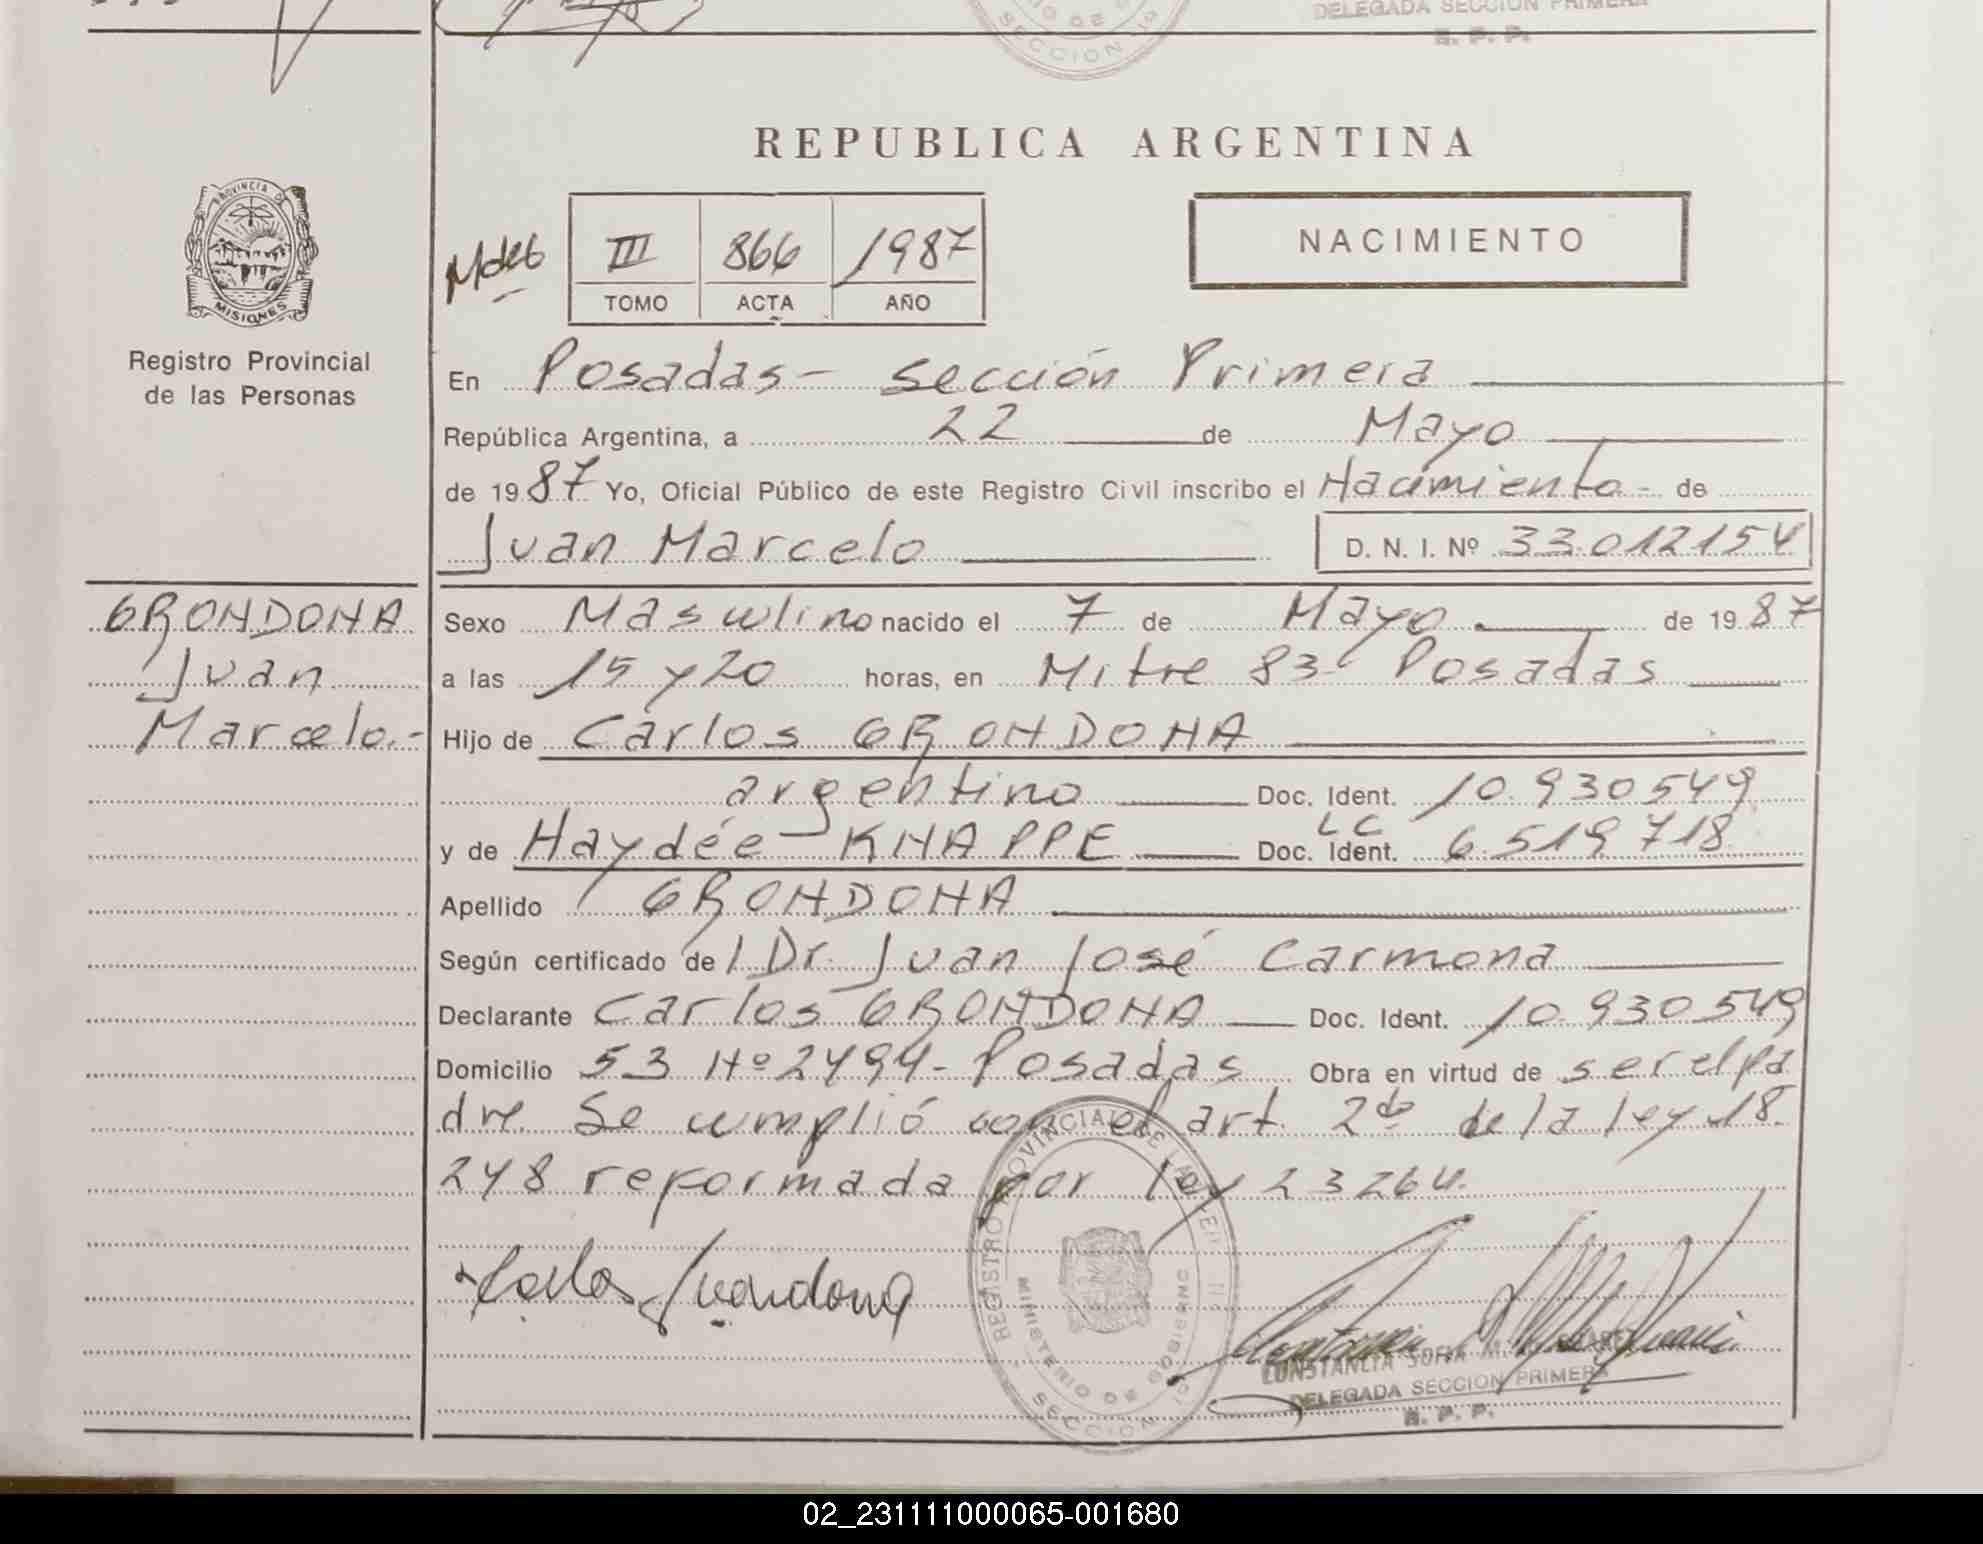 SECCION 1a
DELEGADA SECCION PRIMERA
R. P. P.
REPUBLICA ARGENTINA
PROVINCIA DE
MISIONES
Registro Provincial
de las Personas
III 866 1987
TOMO ACTA AÑO
NACIMIENTO
En Posadas - sección Primera
República Argentina, a 22 de Mayo
de 1987 Yo, Oficial Público de este Registro Civil inscribo el Nacimiento - de
Juan Marcelo D. N. I. Nº 33.012154
GRONDONA
Juan
Marcelo.-
Sexo Masculino nacido el 7 de Mayo de 1987
a las 15 y 20 horas, en Mitre 83 - Posadas
Hijo de Carlos GRONDONA
argentino Doc. Ident. 10.930549
y de Haydée KNAPPE Doc. Ident. LC 6.519.718
Apellido GRONDONA
Según certificado del Dr. Juan José Carmona
Declarante Carlos GRONDONA Doc. Ident. 10.930549
Domicilio 53 Nº 2494 - Posadas Obra en virtud de ser el pa
dre. Se cumplió con el art. 2do de la ley 18.
248 reformada por ley 23264.
Carlos Grondona
REGISTRO PROVINCIAL DE LAS
MINISTERIO DE GOBIERNO
SECCION 1a
CONSTANCIA SOFIA M.
DELEGADA SECCION PRIMERA
R. P. P.
02_231111000065-001680